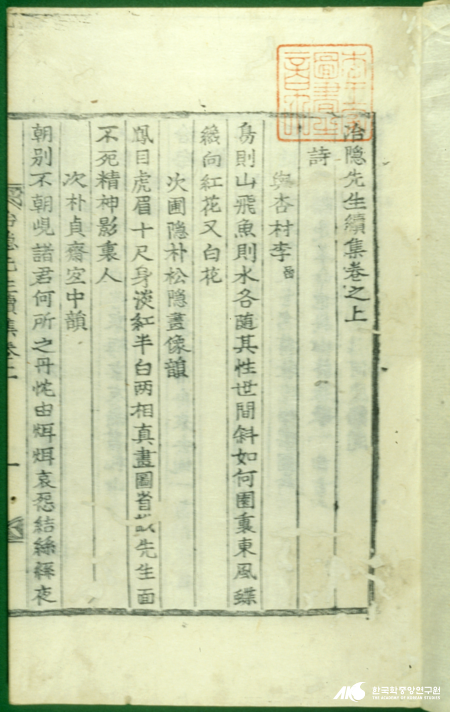 冶隐先生續集卷之上
詩
與杏村李嵒
鳥則山飛魚則水各隨其性世間斜如何園裏東風蝶
幾向紅花又白花
次圃隐朴松隐畫像韻
鳳目虎眉十尺身淡紅半白两相真畫圖省識先生面
不死精神影裏人
次朴貞齋空中韻
朝別不朝晛諸君何所之丹忱由炯炯哀怨結絲絲夜
冶隐先生續集卷上
一
한국학중앙연구원
THE ACADEMY OF KOREAN STUDIES